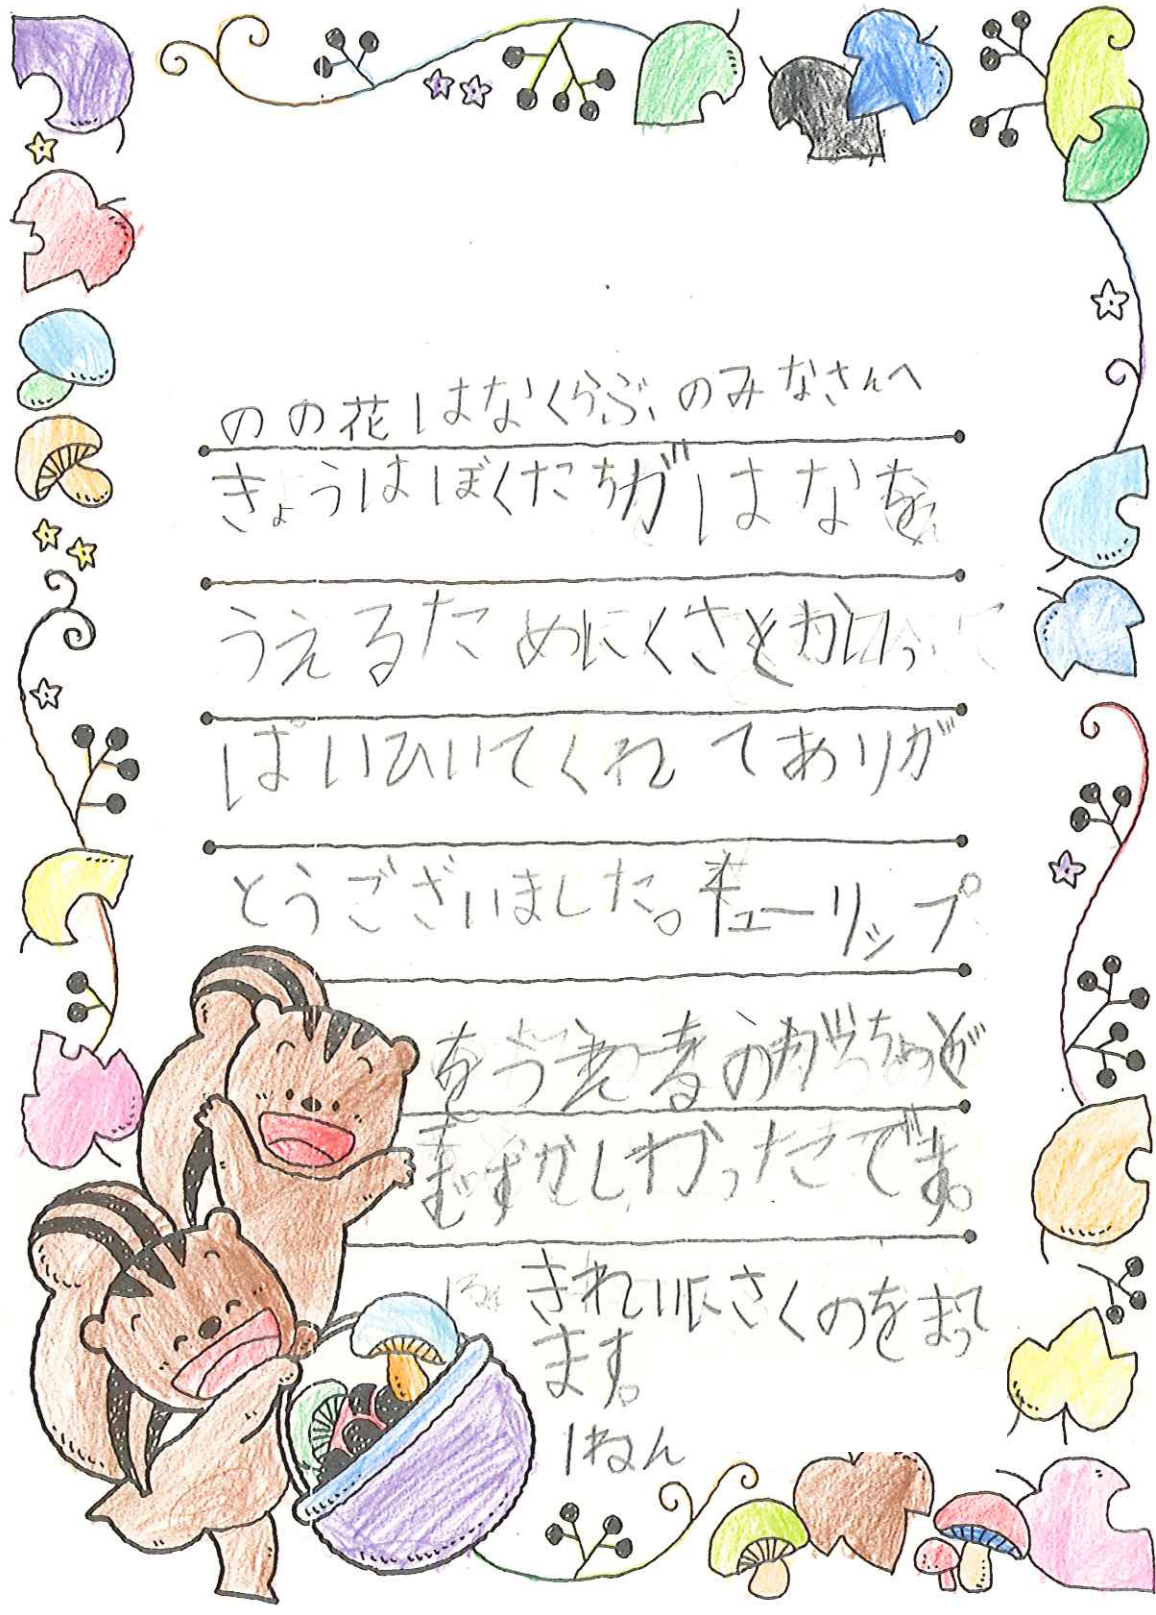 のの花はなくらぶのみなさんへ
きょうはぼくたちがはなを
うえるためにくさとかいっ
ぱいひいてくれてありが
とうございました。チューリップ
をうえるのがちょっと
むずかしかったです。
きれいにさくのをまって
ます。
1ねん